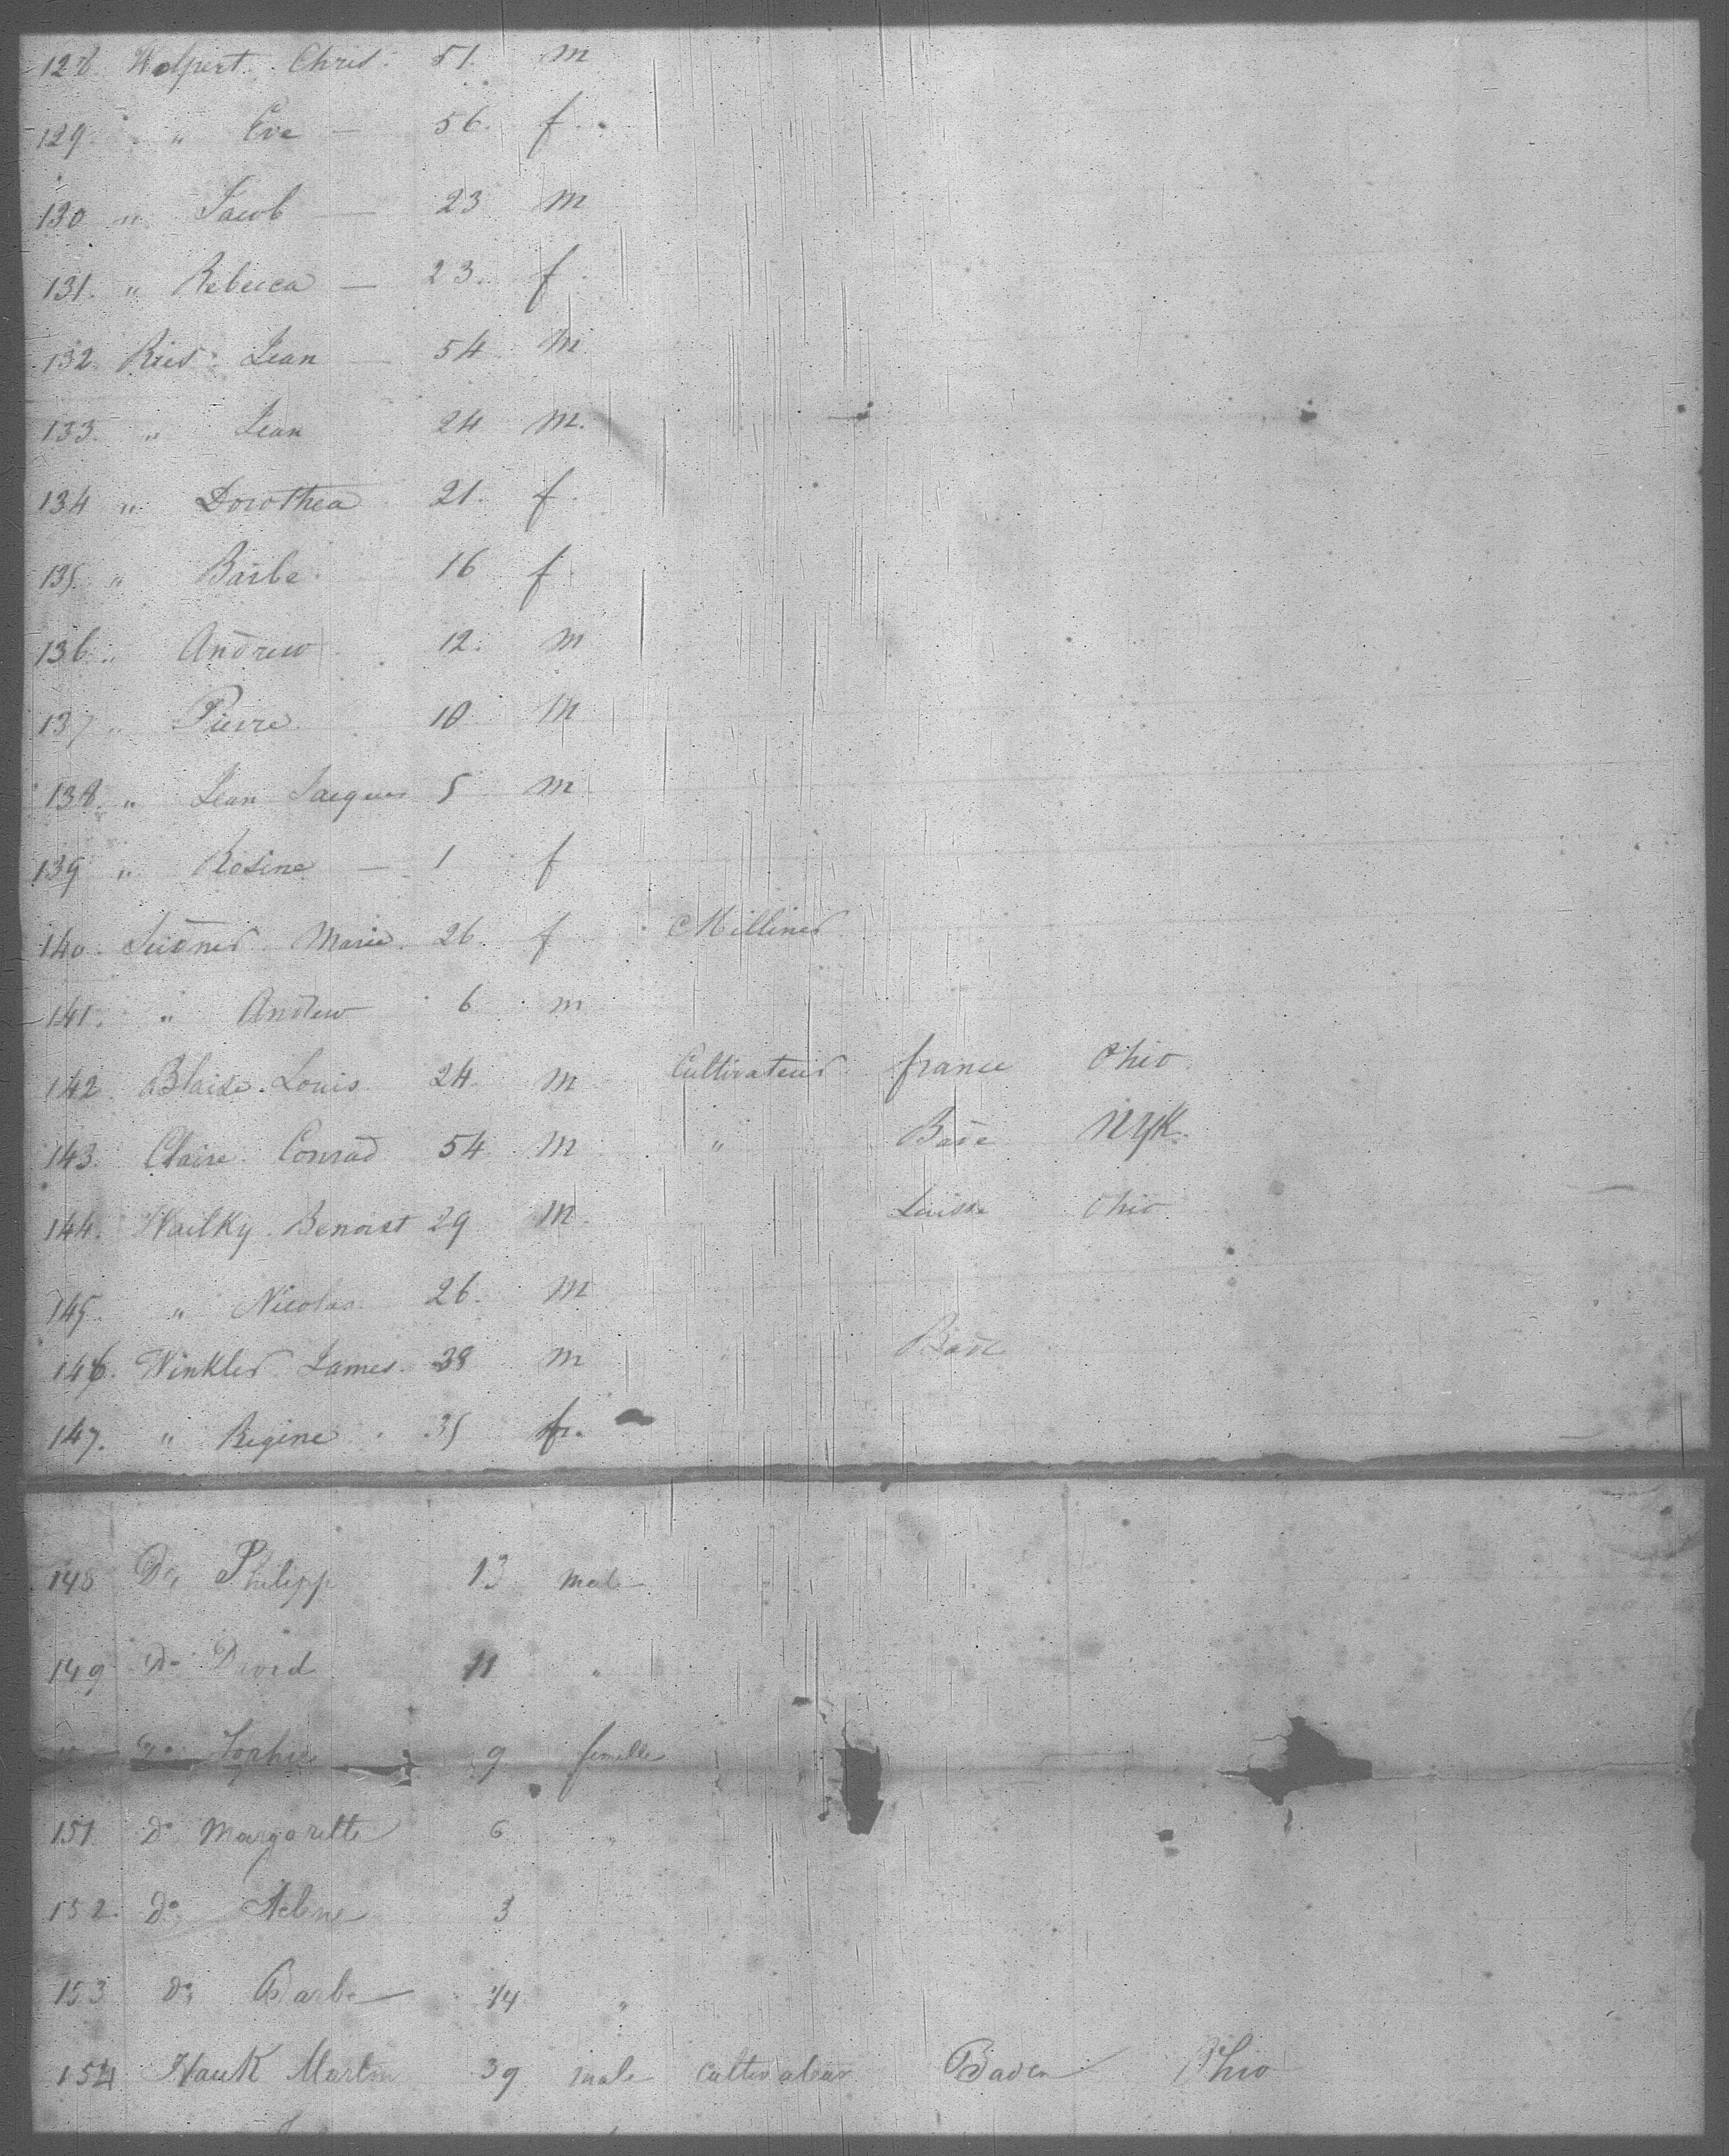 128. Wolpert. Chris. 51. m
129. " Eve — 56. f.
130 " Jacob — 23 m
131. " Rebecca — 23. f.
132. Ries. Jean — 54 m
133. " Jean 24 m.
134 " Dorothea 21. f.
135. " Barbe 16 f.
136. " Andrew 12. m
137 " Pierre 10 m
138. " Jean Jacques 5 m
139 " Rosine — 1 f
140. Marie. 26. f Milliner
141. " Andrew 6 m
142. Blaise. Louis 24. m Cultivateur france Ohio
143. Claire. Conrad 54 m " Bade N Yk.
144. Benoist 29 m. Suisse Ohio
145. " Nicolas. 26. m
146. Winkler James. 38 m Bade
147. " Regine. 35 f.
148 Do Philipp 13 male
149 do David 11 "
Do Sophie 9 femelle
151 Do Margarette 6 "
152. Do Helene 3
153 Do Barbe 1/4 "
154 Hauk Martin 39 male cultivateur Baden Ohio